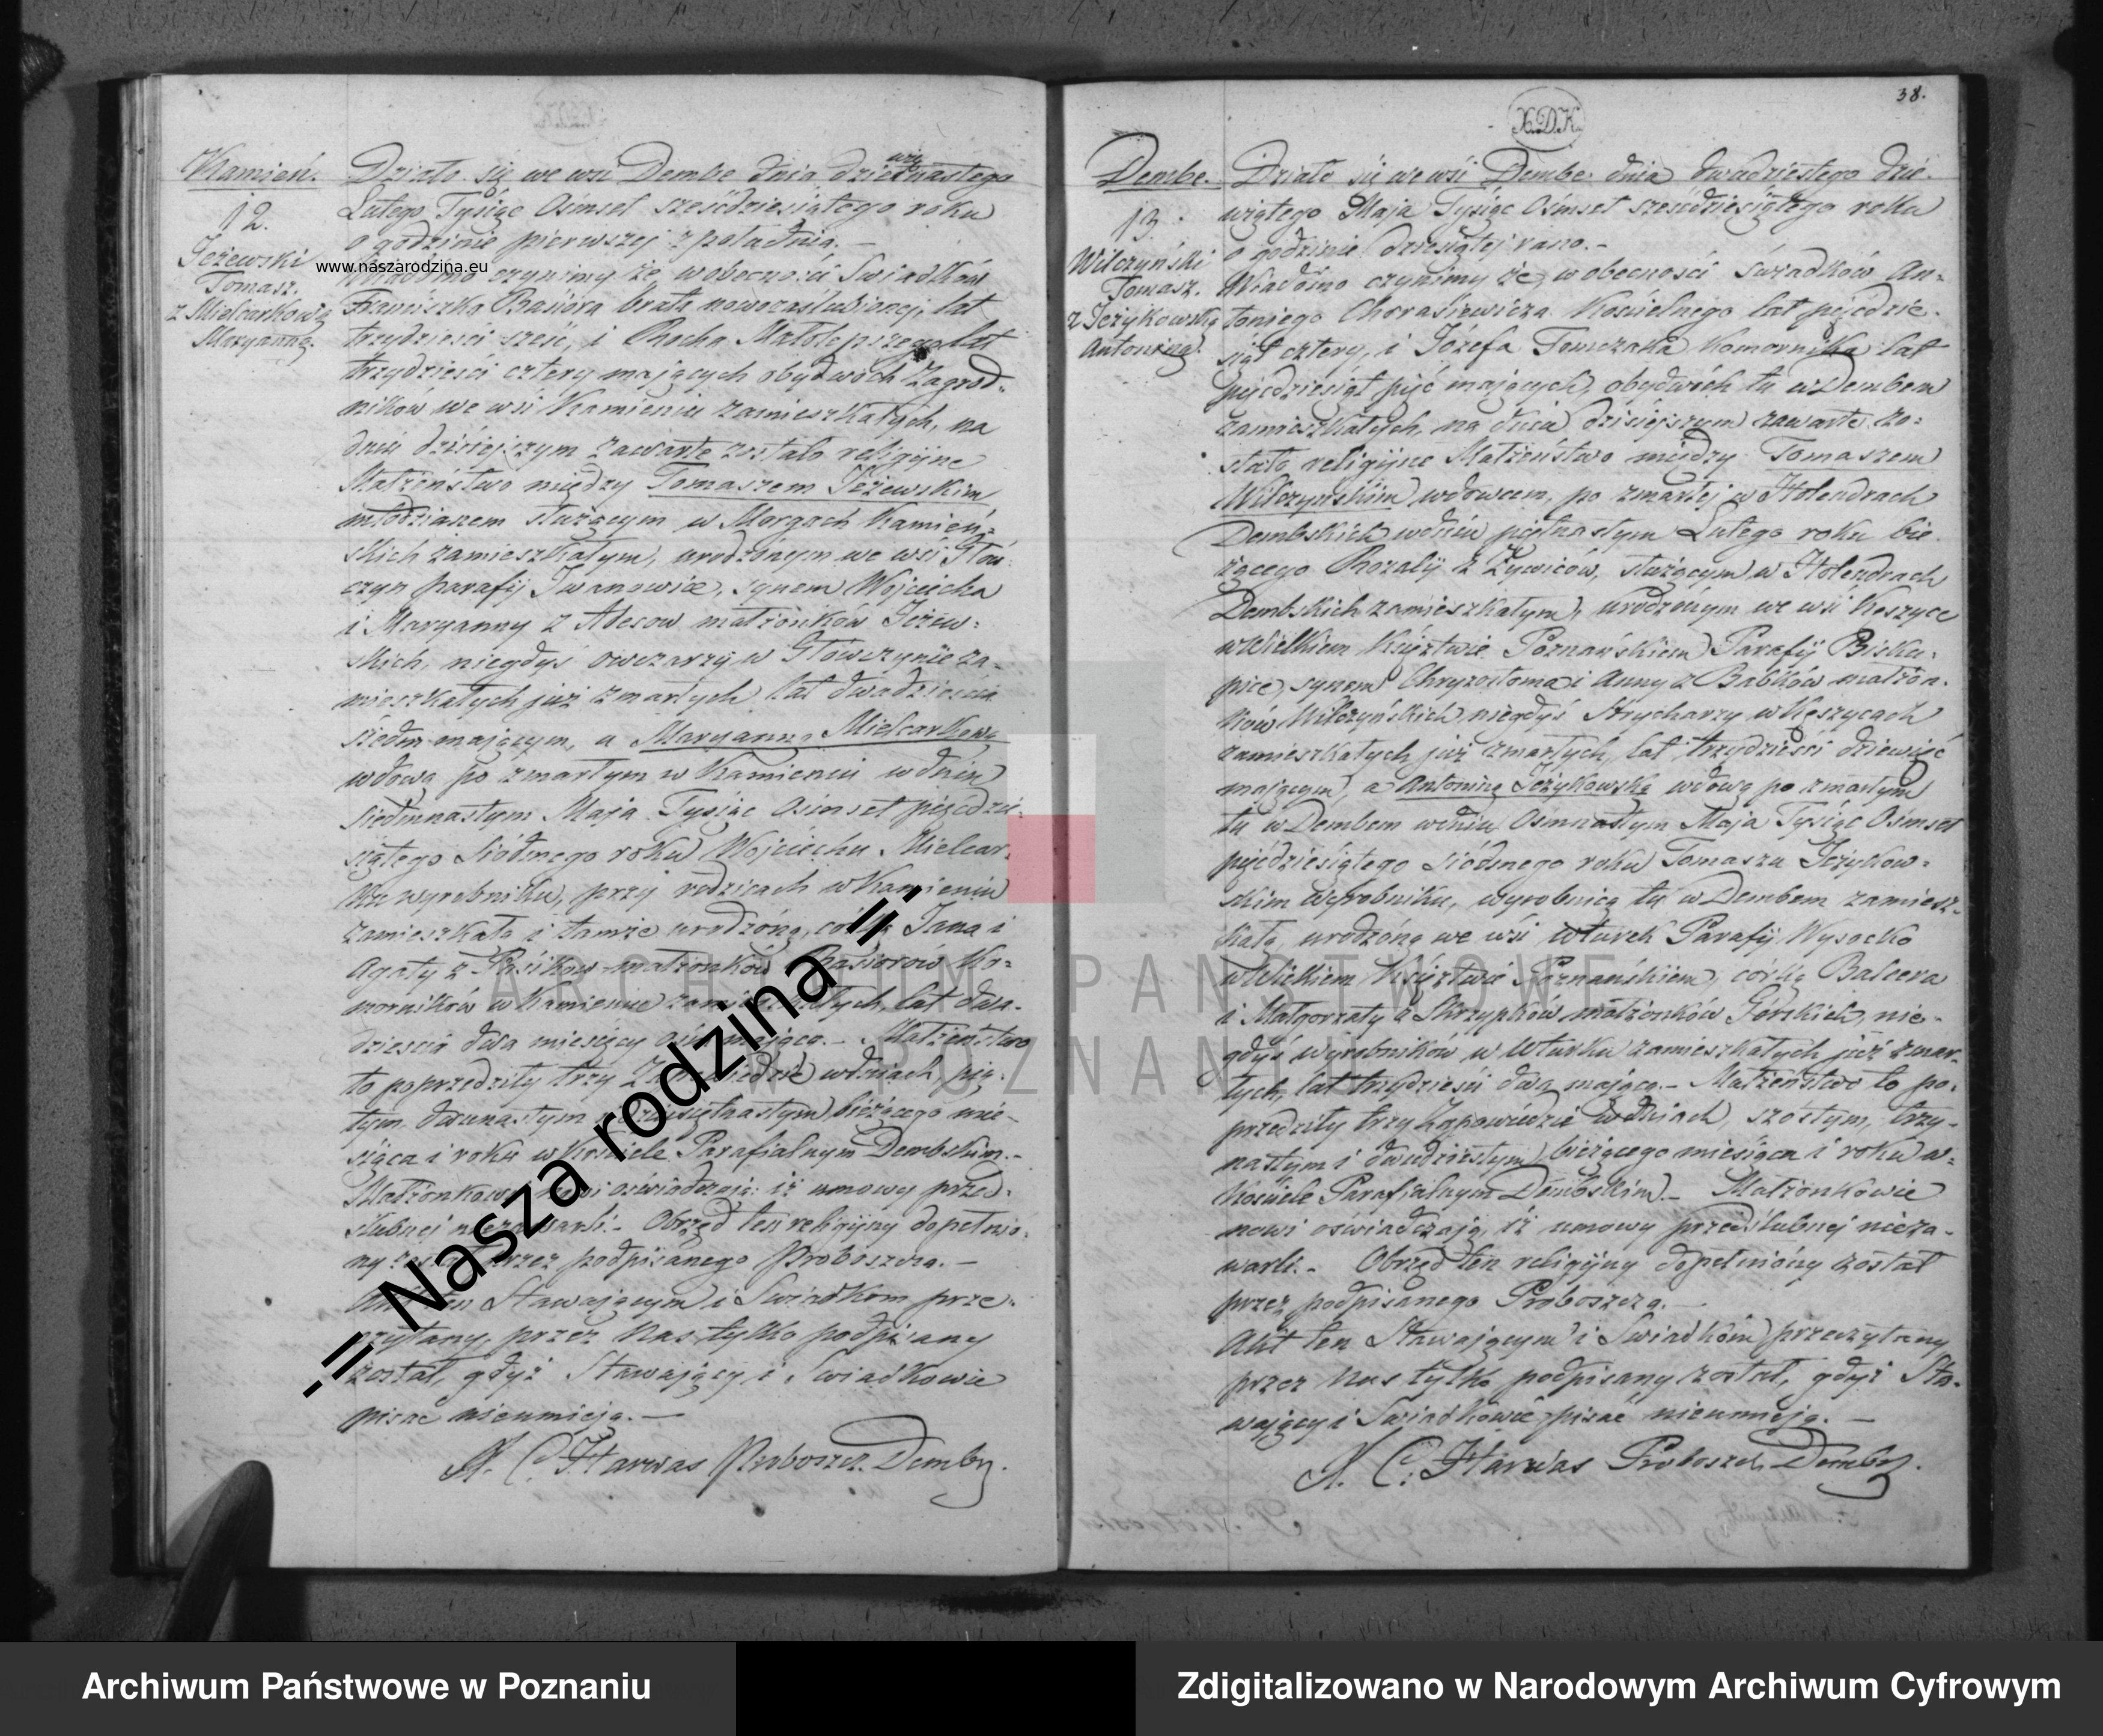 Kamień.
12.
Jeżewski
Tomasz.
z Mielcarkową
Maryanną.
Działo się we wsi Dembe dnia dziewiętnastego
Lutego Tysiąc Osmset sześćdziesiątego roku
o godzinie pierwszej z południa. —
Wiadomo czynimy że w obecności Świadków
Franciszka Basiora brata nowozaślubionej, lat
trzydzieści sześć, i Rocha Małolepszego lat
trzydzieści cztery mających obydwóch Zagrod-
ników we wsi Kamieniu zamieszkałych, na
dniu dzisiejszym zawarte zostało religijne
Małżeństwo między Tomaszem Jeżewskim
młodzianem służącym w Morgach Kamień-
skich zamieszkałym, urodzonym we wsi Głów-
czyn parafij Iwanowice, synem Wojciecha
i Maryanny z małżonków Jeżew-
skich, niegdyś owczarzy w Główczynie za-
mieszkałych już zmarłych, lat dwadzieścia
siedm mającym, a Maryanną Mielcarkową
wdową po zmarłym w Kamieniu w dniu
siedmnastym Maja Tysiąc Osmset pięćdzie-
siątego siódmego roku Wojciechu Mielcar-
ku wyrobniku, przy rodzicach w Kamieniu
zamieszkałą i tamże urodzoną, córką Jana i
Agaty z małżonków Basiorów Ko-
morników w Kamieniu zamieszkałych, lat dwa-
dzieścia dwa miesięcy ośm mającą. — Małżeństwo
to poprzedziły trzy Zapowiedzie w dniach pią-
tym dwunastym i dziewiętnastym bieżącego mie-
siąca i roku w Kościele Parafialnym Dembskim. —
Małżonkowie nowi oświadczają: iż umowy przed-
ślubnej niezawarli. — Obrzęd ten religijny dopełnio-
ny został przez podpisanego Proboszcza. —
Akt ten Stawającym i Świadkom prze-
czytany, przez Nas tylko podpisany
został, gdyż Stawający i Świadkowie
pisać nieumieją. —
X. C. Harwas Proboszcz Demby.
38.
X.D.K.
Dembe.
13.
Wilczyński
Tomasz.
z Jeżykowską
Antoniną.
Działo się we wsi Dembe dnia dwudziestego dzie-
wiątego Maja Tysiąc Osmset sześćdziesiątego roku
o godzinie dziesiątej rano. —
Wiadomo czynimy że w obecności świadków An-
toniego Chorasiewicza Kościelnego lat pięćdzie-
siąt cztery, i Józefa Tomczaka Komornika lat
pięćdziesiąt pięć mających, obydwóch tu w Dembem
zamieszkałych, na dniu dzisiejszym zawarte zo-
stało religijne Małżeństwo między Tomaszem
Wilczyńskim wdowcem, po zmarłej w Holendrach
Dembskich w dniu piętnastym Lutego roku bie-
żącego Rozalij z Żywiców, służącym w Holendrach
Dembskich zamieszkałym, urodzonym we wsi Keszyce
w Wielkiem Księztwie Poznańskiem Parafij Bisku-
pice, synem Chryzostoma i Anny z Babków małżon-
ków Wilczyńskich niegdyś Strycharzy w Keszycach
zamieszkałych już zmarłych, lat trzydzieści dziewięć
mającym, a Antoniną Jeżykowską wdową po zmarłym
tu w Dembem w dniu Osmnastym Maja Tysiąc Osmset
pięćdziesiątego siódmego roku Tomaszu Jeżykow-
skim wyrobniku, wyrobnicą tu w Dembem zamiesz-
kałą, urodzoną we wsi Wturek Parafij Wysocko
w Wielkiem Księztwie Poznańskiem, córką Balcera
i Małgorzaty z Skrzypków małżonków Górskich, nie-
gdyś wyrobników w Wturku zamieszkałych już zmar-
łych, lat trzydzieści dwa mającą. — Małżeństwo to po-
przedziły trzy Zapowiedzie w dniach, szóstym, trzy-
nastym i dwudziestym bieżącego miesiąca i roku w
Kościele Parafialnym Dembskim. — Małżonkowie
nowi oświadczają, iż umowy przedślubnej nieza-
warli. — Obrzęd ten religijny dopełniony został
przez podpisanego Proboszcza. —
Akt ten Stawającym i Świadkom przeczytany
przez Nas tylko podpisany został, gdyż Sta-
wający i Świadkowie pisać nieumieją. —
X. C. Harwas Proboszcz Demby.
www.naszarodzina.eu
-=| Nasza rodzina |=-
ARCHIWUM PAŃSTWOWE
POZNANIU
Archiwum Państwowe w Poznaniu
Zdigitalizowano w Narodowym Archiwum Cyfrowym